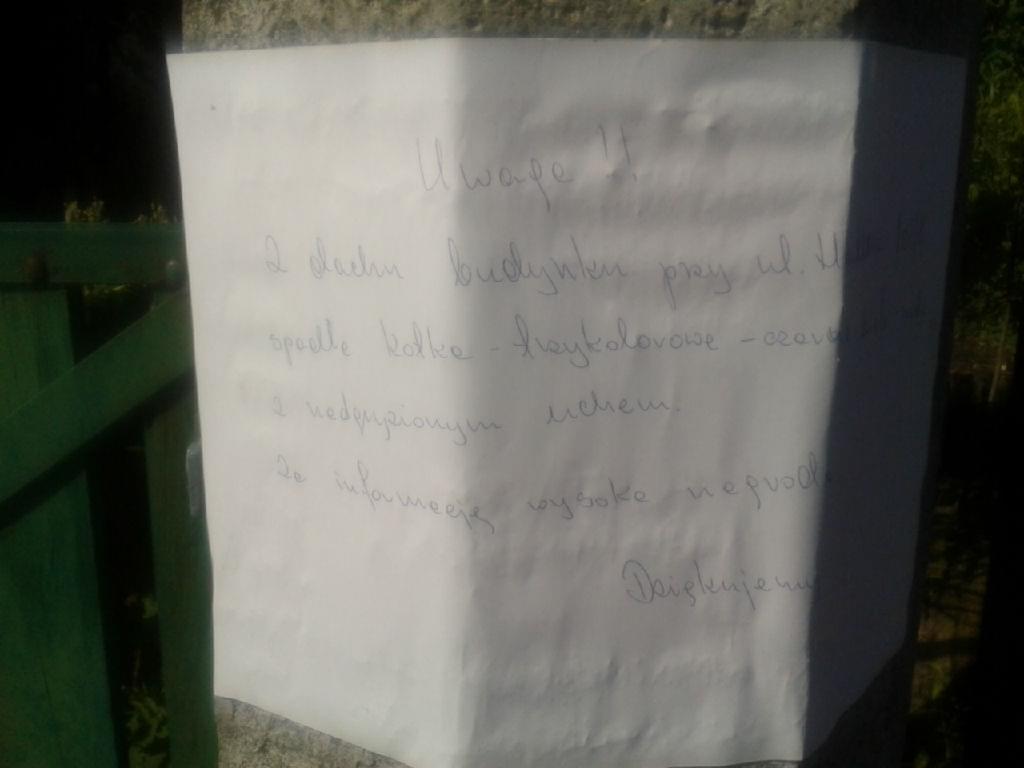 Uwaga !!
Z dachu budynku przy ul.
spadła kotka - trzykolorowa -
z nadgryzionym uchem.
Za informację wysoka nagroda
Dziękujemy